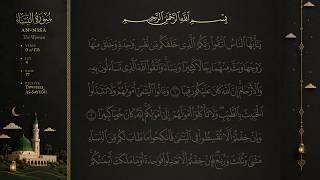 سُورَةُ النِّسَاءِ
AN-NISA
The Women
VERSE
0 of 176
77
بِسْمِ اللَّهِ الرَّحْمَٰنِ الرَّحِيمِ
يَا أَيُّهَا النَّاسُ اتَّقُوا رَبَّكُمُ الَّذِي خَلَقَكُم مِّن نَّفْسٍ وَاحِدَةٍ وَخَلَقَ مِنْهَا
زَوْجَهَا وَبَثَّ مِنْهُمَا رِجَالًا كَثِيرًا وَنِسَاءً وَاتَّقُوا اللَّهَ الَّذِي تَسَاءَلُونَ بِهِ
وَالْأَرْحَامَ إِنَّ اللَّهَ كَانَ عَلَيْكُمْ رَقِيبًا ١ وَآتُوا الْيَتَامَىٰ أَمْوَالَهُمْ وَلَا تَتَبَدَّلُوا
الْخَبِيثَ بِالطَّيِّبِ وَلَا تَأْكُلُوا أَمْوَالَهُمْ إِلَىٰ أَمْوَالِكُمْ إِنَّهُ كَانَ حُوبًا كَبِيرًا ٢
وَإِنْ خِفْتُمْ أَلَّا تُقْسِطُوا فِي الْيَتَامَىٰ فَانكِحُوا مَا طَابَ لَكُم مِّنَ النِّسَاءِ
مَثْنَىٰ وَثُلَاثَ وَرُبَاعَ فَإِنْ خِفْتُمْ أَلَّا تَعْدِلُوا فَوَاحِدَةً أَوْ مَا مَلَكَتْ أَيْمَانُكُمْ